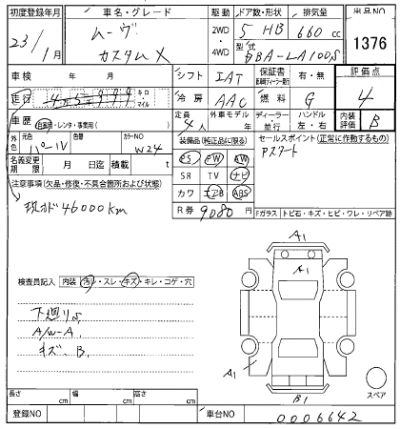 初度登録年月 車名・グレード 駆動 ドア数・形状 排気量 出品NO
23/1月 ムーヴ カスタムX 2WD・4WD 5 HB 660cc 1376
型式 DBA-LA100S
車検 年 月 シフト IAT 保証書 有・無 評価点
走行 キロ マイル 冷房 AAC 燃料 G 4
車歴 自家用・レンタ・事業用( ) 定員 4人 外車モデル年 ディーラー 並行 ハンドル 左・右 内装評価 B
外色 パール 色替 カラーNO W24 装備品(純正品に限る) セールスポイント(正常に作動するもの)
名義変更期限 月 日迄 積載量 t PS PW AW Pスタート
注意事項(欠品・修復・不具合箇所および状態) SR TV ナビ
現メーター46000km カワ エアB ABS
R券 9080円 Fガラス トビ石・キズ・ヒビ・ワレ・リペア跡
A1
A1
検査員記入 内装 汚レ・スレ・キズ・キレ・コゲ・穴
下廻りS
A/W-A
キズ、B
A1
B1
スペア
長さ cm 幅 cm 高さ cm
登録NO 車台NO 0006642